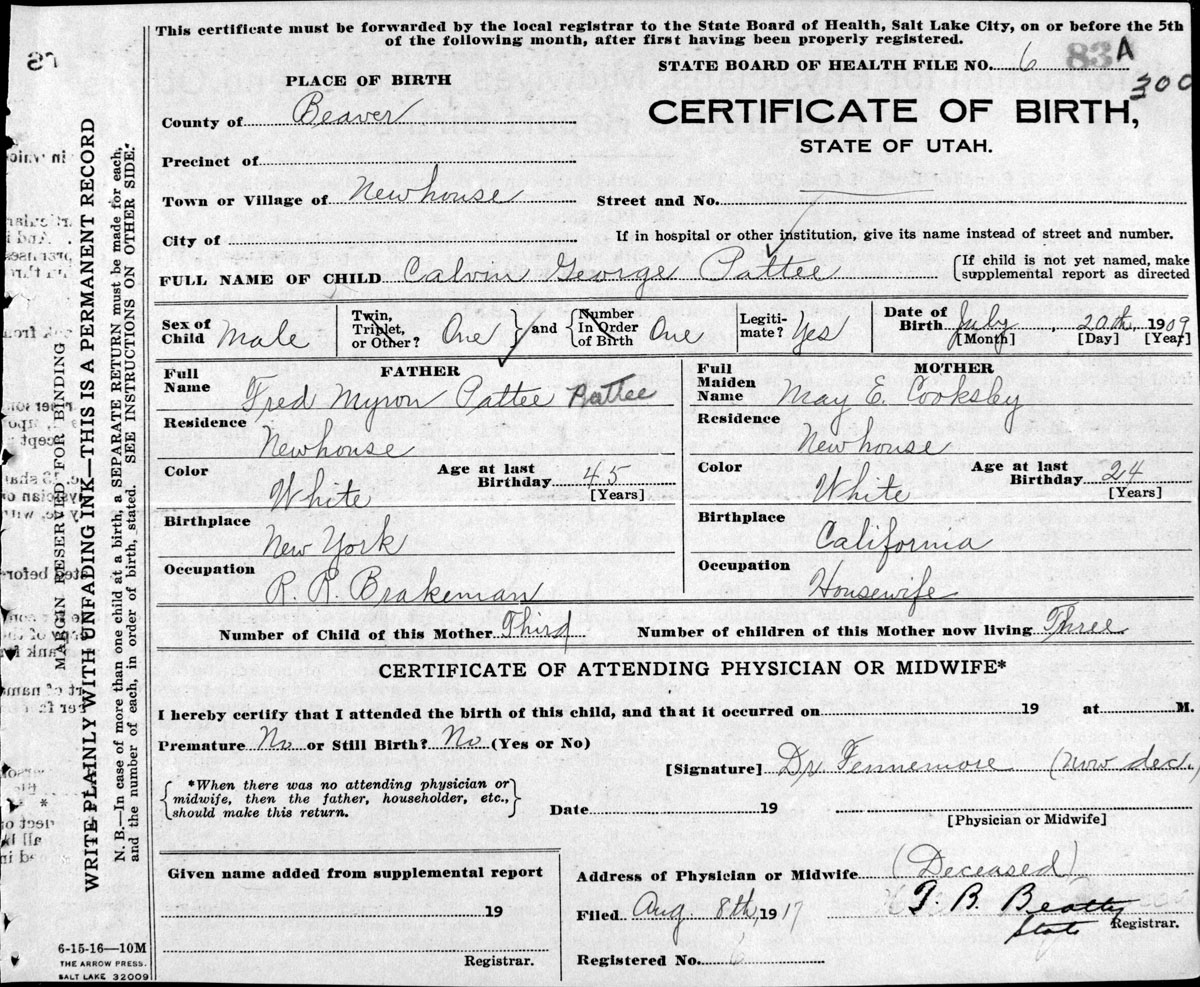 This certificate must be forwarded by the local registrar to the State Board of Health, Salt Lake City, on or before the 5th
of the following month, after first having been properly registered.
STATE BOARD OF HEALTH FILE NO. 6 83 A
300
PLACE OF BIRTH
County of Beaver
CERTIFICATE OF BIRTH,
STATE OF UTAH.
Precinct of
Town or Village of Newhouse Street and No.
City of If in hospital or other institution, give its name instead of street and number.
FULL NAME OF CHILD Calvin George Pattee {If child is not yet named, make
supplemental report as directed
Sex of Child Male Twin, Triplet, or Other? One } and { Number In Order of Birth One Legiti-mate? Yes Date of Birth July, 20th, 1909
[Month] [Day] [Year]
FATHER MOTHER
Full Name Fred Myron Pattee Pattee Full Maiden Name May E. Cooksley
Residence Newhouse Residence Newhouse
Color White Age at last Birthday 45 [Years] Color White Age at last Birthday 24 [Years]
Birthplace New York Birthplace California
Occupation R. R. Brakeman Occupation Housewife
Number of Child of this Mother Third Number of children of this Mother now living Three
CERTIFICATE OF ATTENDING PHYSICIAN OR MIDWIFE*
I hereby certify that I attended the birth of this child, and that it occurred on 19 at M.
Premature No or Still Birth? No (Yes or No)
[Signature] Dr Fennemore (now decd.
*When there was no attending physician or
midwife, then the father, householder, etc.,
should make this return.
Date 19
[Physician or Midwife]
Given name added from supplemental report
19
Registrar.
Address of Physician or Midwife (Deceased)
Filed Aug. 8th, 1917 T. B. Beatty
State Registrar.
Registered No. 6
6-15-16—10M
THE ARROW PRESS.
SALT LAKE 32009
MARGIN RESERVED FOR BINDING
WRITE PLAINLY WITH UNFADING INK—THIS IS A PERMANENT RECORD
N. B.—In case of more than one child at a birth, a SEPARATE RETURN must be made for each,
and the number of each, in order of birth, stated. SEE INSTRUCTIONS ON OTHER SIDE.